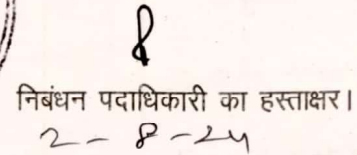 निबंधन पदाधिकारी का हस्ताक्षर।
2-8-24